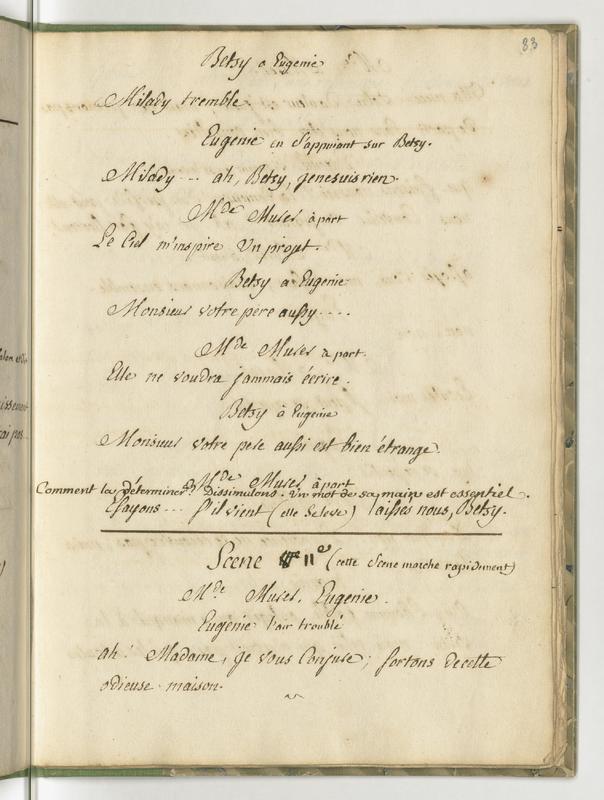 83
Betsy a Eugenie
Milady tremble.
Eugenie en s'appuiant sur Betsy.
Milady --- ah, Betsy, jenesuis rien.
Mde Murer à part
Le Ciel m'inspire un projet.
Betsy a Eugenie
Monsieur votre pere aussy ----
Mde Murer a part.
Elle ne voudra jammais écrire.
Betsy à Eugenie
Monsieur votre pere aussi est bien étrange.
Mde Murer à part
Comment la déterminer? Dissimulons. Un mot de sa main est essentiel.
Essayons --- s'il vient (elle se leve) laisses nous, Betsy.
Scene 11e (cette Scene marche rapidement)
Mde Murer, Eugenie.
Eugenie l'air troublé
ah! Madame, je vous Conjure; sortons decette
odieuse maison.